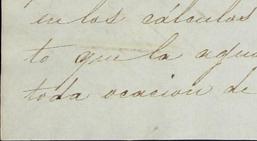 en los cálculos
to que la aqui
toda ocacion de